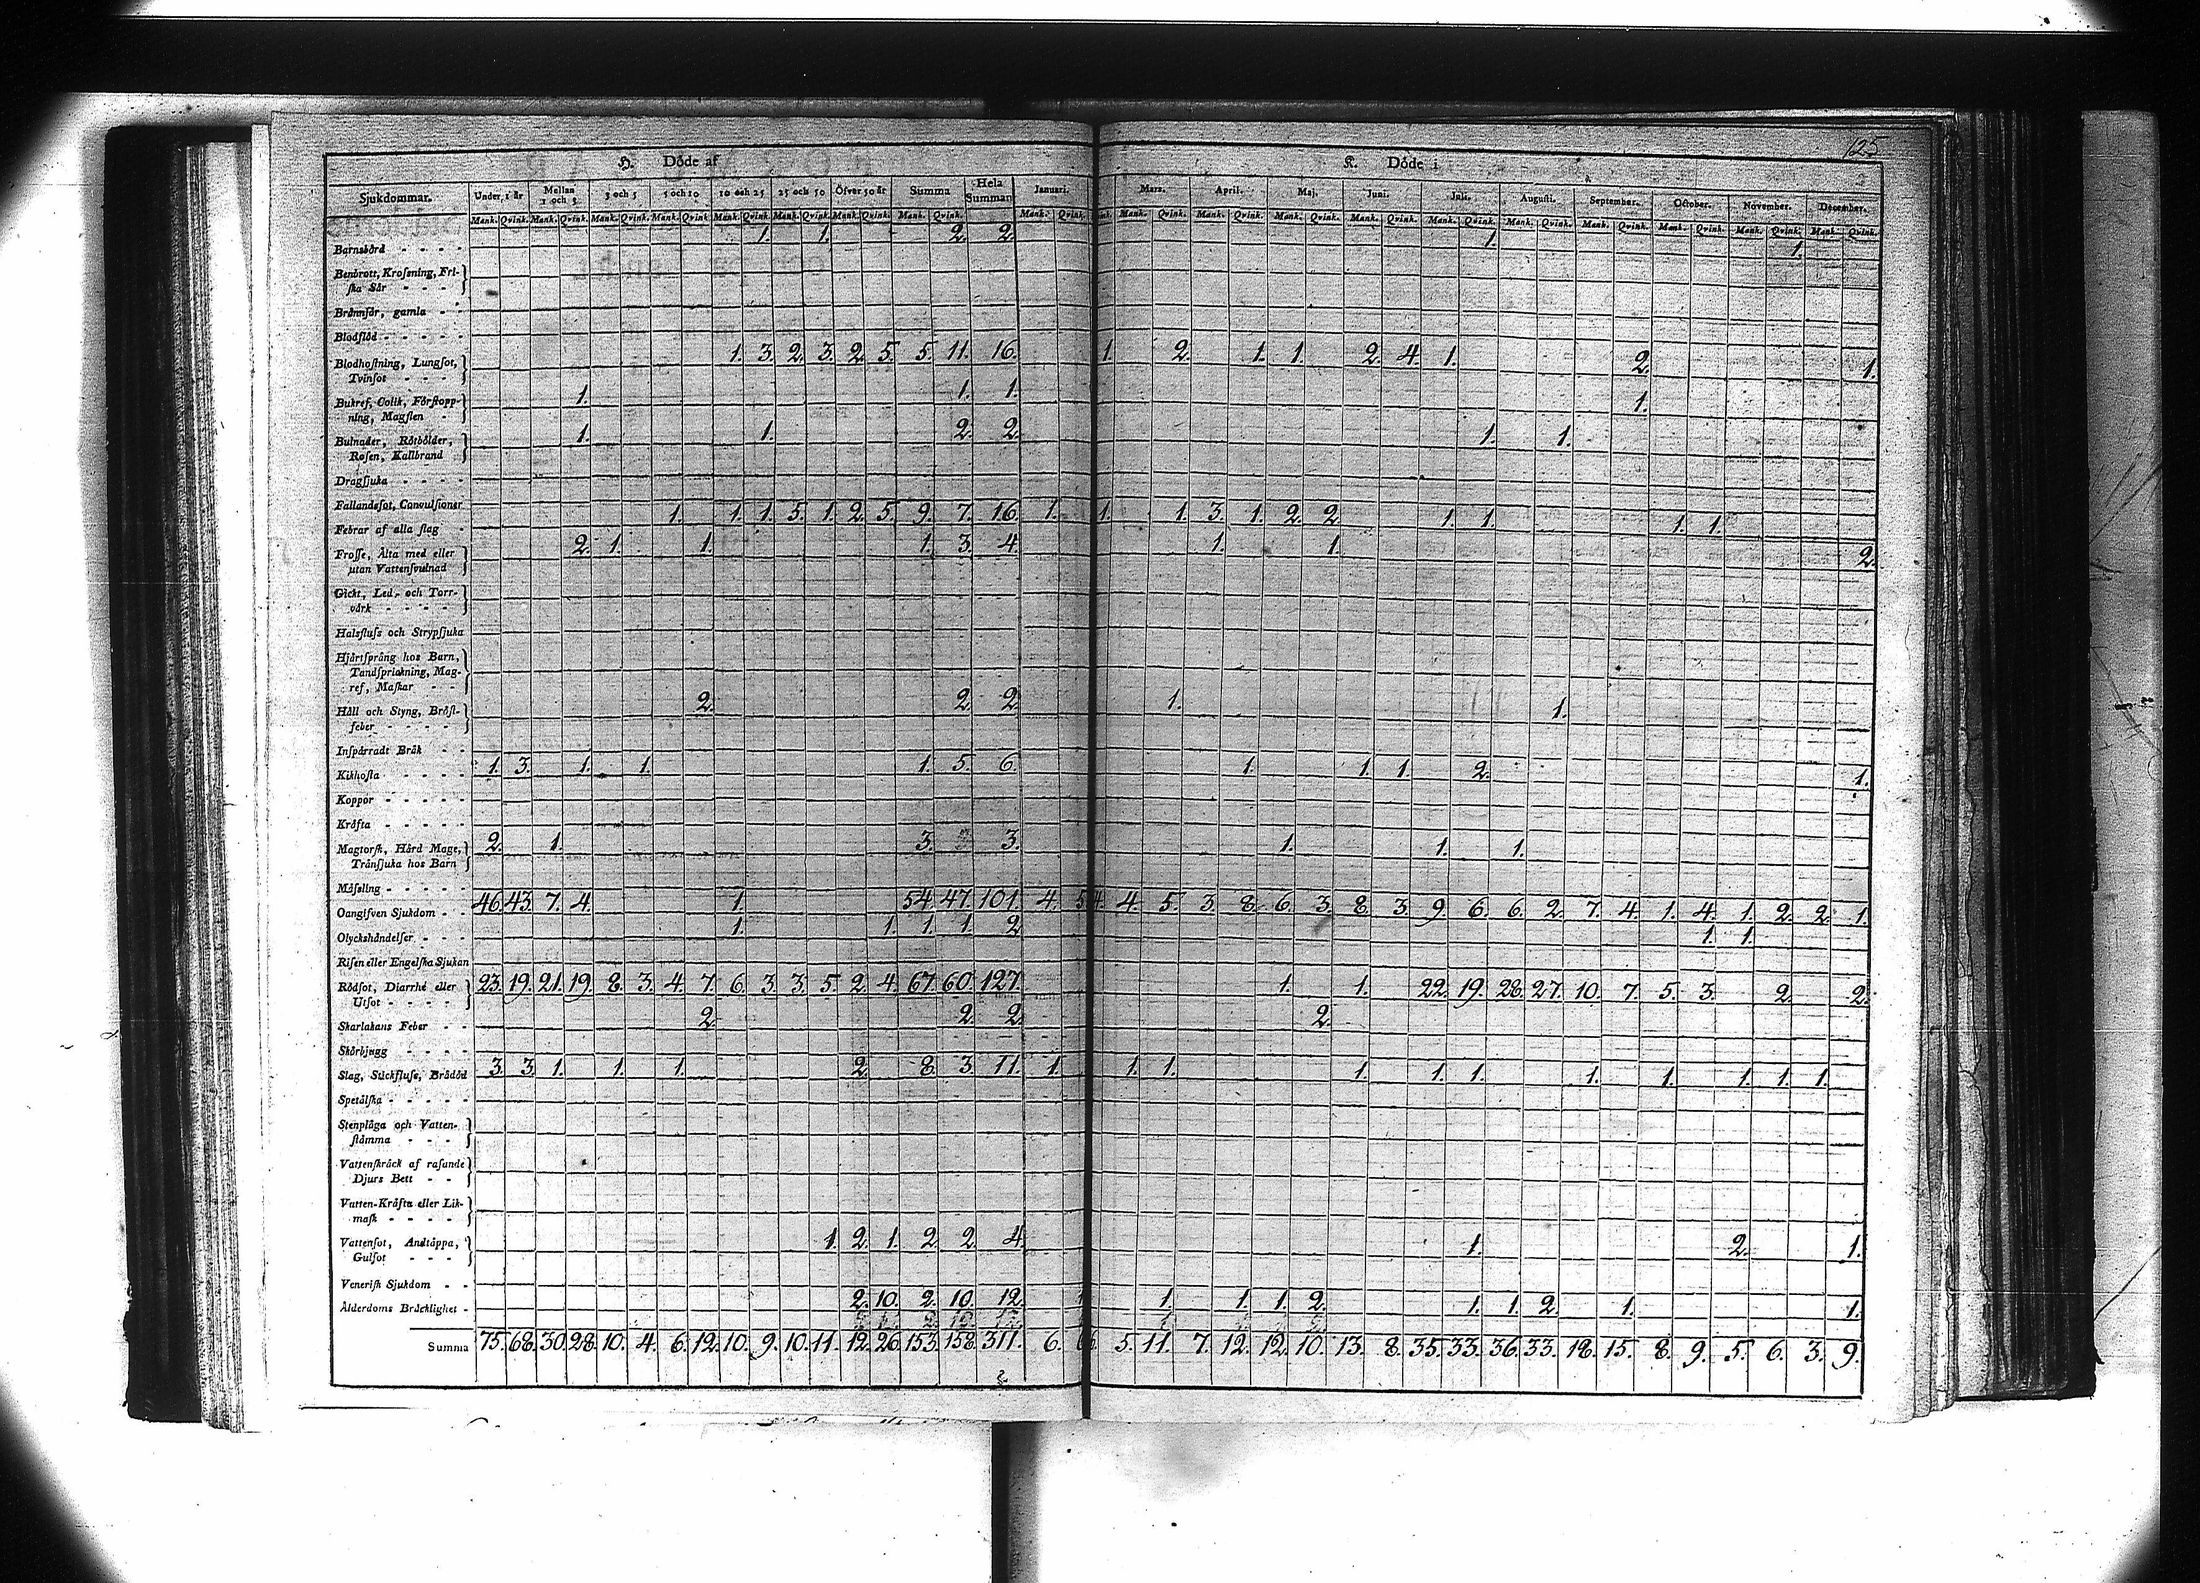 125
H. Döde af
K. Döde i
Sjukdommar. Under 1 år Mellan 1 och 3 3 och 5 5 och 10 10 och 25 25 och 50 Öfver 50 år Summa Hela Summan Januari. Mars. April. Maj. Juni. Juli. Augusti. September. October. November. December.
Mank. Qvink. Mank. Qvink. Mank. Qvink. Mank. Qvink. Mank. Qvink. Mank. Qvink. Mank. Qvink. Mank. Qvink. Mank. Qvink. Mank. Mank. Qvink. Mank. Qvink. Mank. Qvink. Mank. Qvink. Mank. Qvink. Mank. Qvink. Mank. Qvink. Mank. Qvink. Mank. Qvink. Mank. Qvink.
Barnsbörd - - - - 1. 1. 2. 2. 1. 1.
Benbrott, Krossning, Fri-
ska Sår - - -
Brännsår, gamla - -
Blodflöd - - - - -
Blodhostning, Lungsot, 1. 3. 2. 3. 2. 5. 5. 11. 16. 1. 2. 1. 1. 2. 4. 1. 2. 1.
Tvinsot - - -
Bukref, Colik, Förstopp- 1. 1. 1. 1.
ning, Magsten
Bulnader, Rötbölder, 1. 1. 2. 2. 1. 1.
Rosen, Kallbrand
Dragsjuka - - - - -
Fallandesot, Convulsioner
Febrar af alla slag - 1. 1. 1. 5. 1. 2. 5. 9. 7. 16. 1. 1. 1. 3. 1. 2. 2. 1. 1. 1. 1.
Frossa, Älta med eller 2. 1. 1. 1. 3. 4. 1. 1. 2.
utan Vattensvulnad
Gickt, Led- och Torr-
värk - - - -
Halsfluss och Strypsjuka
Hjärtsprång hos Barn,
Tandsprickning, Mag-
ref, Maskar - -
Håll och Styng, Bröst- 2. 2. 2. 1. 1.
feber - - - -
Inspärradt Bråk - -
Kikhosta - - - - 1. 3. 1. 1. 1. 5. 6. 1. 1. 1. 2. 1.
Koppor - - - - -
Kräfta - - - - -
Magtorsk, Hård Mage, 2. 1. 3. 3. 1. 1. 1.
Trånsjuka hos Barn
Mässling - - - - -
Oangifven Sjukdom - - 46. 43. 7. 4. 1. 54. 47. 101. 4. 4. 4. 5. 3. 8. 6. 3. 8. 3. 9. 6. 6. 2. 7. 4. 1. 4. 1. 2. 2. 1.
Olyckshändelser - - - 1. 1. 1. 1. 2 1. 1.
Risen eller Engelska Sjukan
Rödsot, Diarrhé eller 23. 19. 21. 19. 8. 3. 4. 7. 6. 3. 3. 5. 2. 4. 67. 60. 127. 1. 1. 22. 19. 28. 27. 10. 7. 5. 3. 2. 2.
Utsot - - - -
Skarlakans Feber - - 2. 2. 2. 2.
Skörbjugg - - - -
Slag, Stickfluss, Brådöd 3. 3. 1. 1. 1. 2. 8. 3. 11. 1. 1. 1. 1. 1. 1. 1. 1. 1. 1. 1.
Spetälska - - - - -
Stenplåga och Vatten-
stämma - - -
Vattenskräck af rasande
Djurs Bett - -
Vatten-Kräfta eller Lik-
mask - - - -
Vattensot, Andtäppa, 1. 2. 1. 2. 2. 4. 1. 2. 1.
Gulsot - - -
Venerisk Sjukdom - -
Ålderdoms Bräcklighet - 2. 10. 2. 10. 12. 1. 1. 1. 2. 1. 1. 2. 1. 1.
Summa 75. 68. 30. 28. 10. 4. 6. 12. 10. 9. 10. 11. 12. 26. 153. 158. 311. 6. 5. 11. 7. 12. 12. 10. 13. 8. 35. 33. 36. 33. 18. 15. 8. 9. 5. 6. 3. 9.